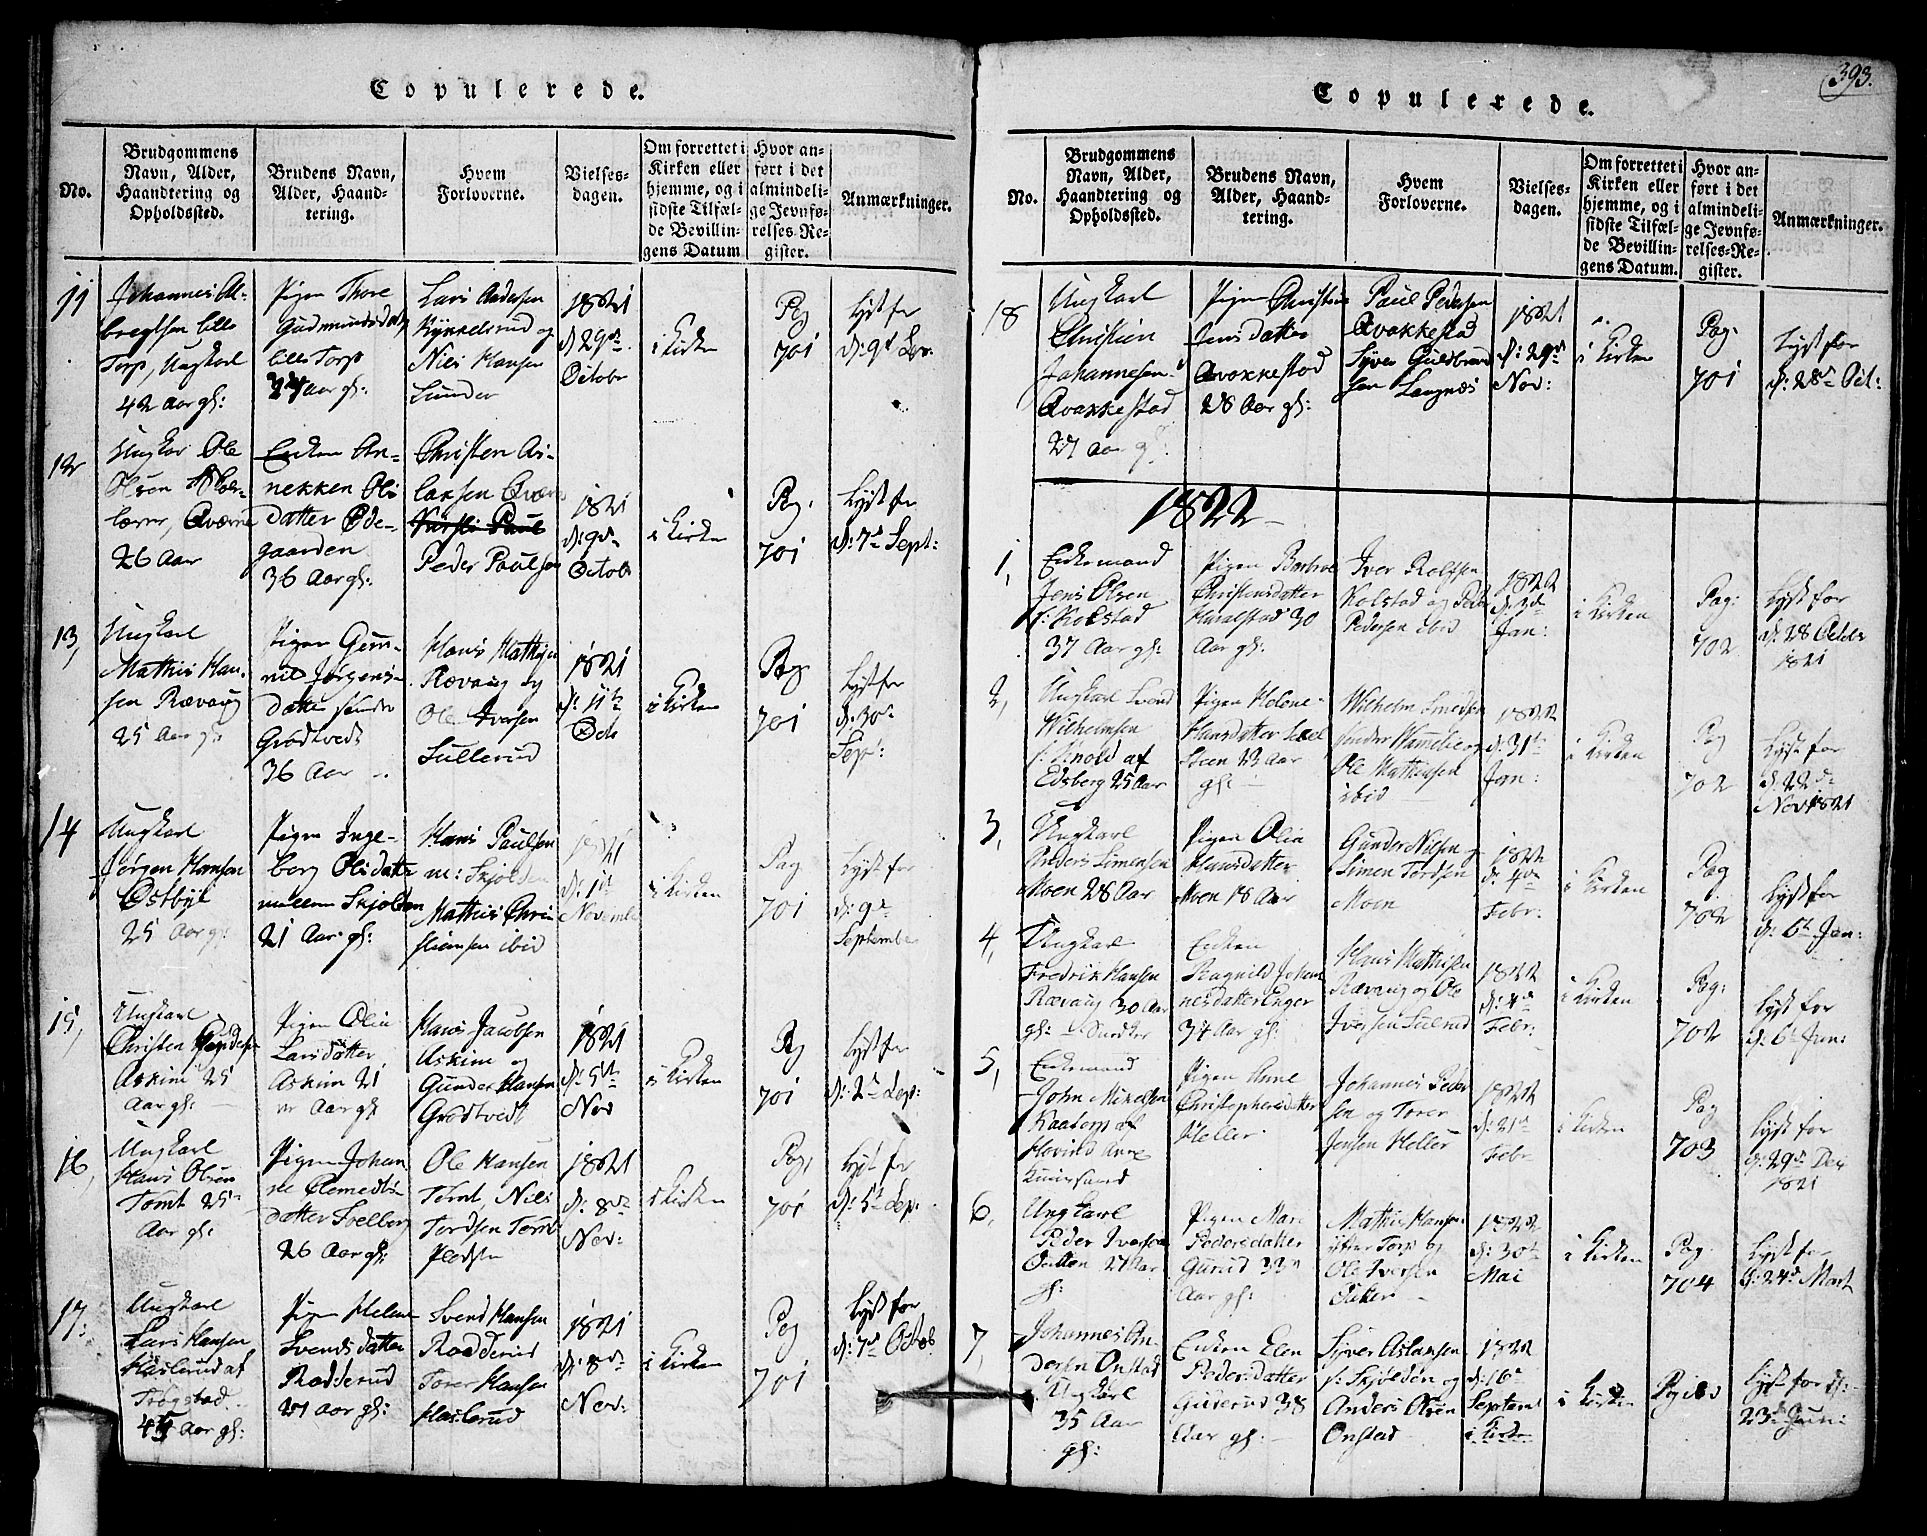 393.
Copulerede.
No.
Brudgommens Navn, Alder, Haandtering og Opholdssted.
Brudens Navn, Alder, Haandtering.
Hvem Forloverne.
Vielsesdagen.
Om forrettet i Kirken eller hjemme, og i sidste Tilfælde Bevillingens Datum
Hvor anført i det almindelige Jevnførelses-Register.
Anmærkninger.
11
Johannes Al-
bregtsen lille
Torp, Ungkarl
42 Aar gl:
Pigen Thore
Gudmundsdatt
lille Torp
Aar gl:
Lars Andersen
Kykkelsrud og
Niels Hansen
Lunder
1821
d 29de
Octobr
i Kirken
Pag
701
Lyst før
d: 9d Sep:
12
Ungkar Ole
Olsen
Qværne
26 Aar
Enken An-
nekken Ols
datter Øde-
gaarden
36 Aar gl:
Christen As-
laksen Qværn
Peder Paulsen
1821
d: 9de
Octob
i Kirken
Pag.
701
Lyst før
d: 7d Sept:
13,
Ungkarl
Mathis Han-
sen Rævaug
25 Aar gl:
Pigen Gun-
nil Jørgens-
datter søndr
Grødtvedt
36 Aar
Hans Mathisen
Rævaug og
Ole Iversen
Sullerud
1821
d: 11te
Octb
i Kirken
Pag
701
Lyst før
d: 30d
Sept:
14
Ungkarl
Jørgen Hansen
Østbye
25 Aar gl:
Pigen Inge-
borg Olsdatter
mellem Skjolden
21 Aar gl:
Hans Paulsen
m: Skjolden
Mathis Chri-
stiansen ibid
1821
d: 1st
Novembr
i Kirken
Pag
701
Lyst før
d: 9d
September
15,
Ungkarl
Christen
Askim 25
Aar gl:
Pigen Olia
Larsdatter
Askim 21
Aar gl
Hans Jacobsen
Askim og
Gunder Hansen
Grødtvedt
1821
d: 5te
Nov
i Kirken
Pag
701
Lyst før
d: 2d Sep:
16,
Ungkarl
Hans Olsen
Tomt 25
Aar gl:
Pigen Johan
ne Clemedts-
datter Svelberg
26 Aar gl:
Ole Hansen
Tomt, Niels
Tordsen Tomt
Pladsen
1821
d: 8de
Nov:
i Kirken
Pag,
701
Lyst før
d: 5t Sep:
17:
Ungkarl
Lars Hansen
Haslerud af
Trøgstad
Aar gl:
Pigen Helene
Svendsdatter
Rødderud
27 Aar gl:
Svend Hansen
Rødderud
Torer Hansen
Haslerud
1821
d: 8de
Nov:
i Kirken
Pag
701
Lyst før
d: 7d Octob
Copulerede.
No.
Brudgommens Navn, Alder, Haandtering og Opholdssted.
Brudens Navn, Alder, Haandtering.
Hvem Forloverne.
Vielsesdagen.
Om forrettet i Kirken eller hjemme, og i sidste Tilfælde Bevillingens Datum.
Hvor anført i det almindelige Jevnførelses-Register.
Anmærkninger.
18
Ungkarl
Christian
Johannesen
Qvakkestad
27 Aar gl:
Pigen Christens
Jensdatter
Qvakkestad
28 Aar gl:
Paul Pedersen
Qvakkestad
Syver Guldbrand
sen Langnæs
1821
d: 29d
Nov:
i Kirken
Pag.
701
Lyst før
d: 28d Oct:
1822
1,
Enkemand
Jens Olsen
Kolstad
37 Aar gl:
Pigen Barbroe
Christensdatter
Huralstad 30
Aar gl:
Iver Rolfsen
Kolstad og Peder
Pedersen ibid
1822
d: 3de
Jan:
i Kirken
Pag:
702
Lyst før
d: 28 Octbr
1821
2,
Ungkarl Svend
Wilhelmsen
af
Edsberg 25 Aar
Pigen Helene
Hansdatter
23 Aar
gl:
Wilhelm Svendsen
og
Ole Mathiesen
ibid
1822
d: 31te
Jan:
i Kirken
Pag
702
Lyst før
d: 22d
Nov 1821
3,
Ungkarl
Anders Simensen
Moen 28 Aar
Pigen Olia
Hansdatter
Moen 18 Aar
Gunder Nilsen og
Simen Tordsen
Moen
1822
d: 4de
Febr:
i Kirken
Pag
702
Lyst for
d: 6t Jan:
4,
Ungkarl
Fredrik Hansen
Rævaug 30 Aar
gl:
Enken
Ragnild Johan
nesdatter
34 Aar gl:
Hans Mathisen
Rævaug og Ole
Iversen Sulerud
1822
d: 4de
Febr:
i Kirken
Pag:
702
Lyst for
d: 6t Jan:
5,
Enkemand
John Mikelsen
Kaatorp af
Hovind Anne
Pigen Anne
Christophersdatter
Heller
Johannes Peder
sen og Torer
Jensen Heller
1822
d: 21d
Febr
i Kirken
Pag
703
Lyst før
d: 29d Dec
1821
6,
Ungkarl
Peder Iversen
27 Aar
gl:
Pigen Mari
Pedersdatter
Gurud 33
Aar gl:
Mathis Hansen
Torp og
Ole Iversen
1822
d: 30te
Mai
i Kirken
Pag
704
Lyst før
d: 24d Mart
7,
Johannes An-
dersen Onstad
Ungkarl
35 Aar
gl:
Enken Elen
Pedersdatter
Guderud 38
Aar gl:
Syver Aslaksen
Skjolden og
Anders Olsen
Onstad
1822
d: 16
Septem
i Kirk
i Kirken
Pag
Lyst for d:
23d Juni